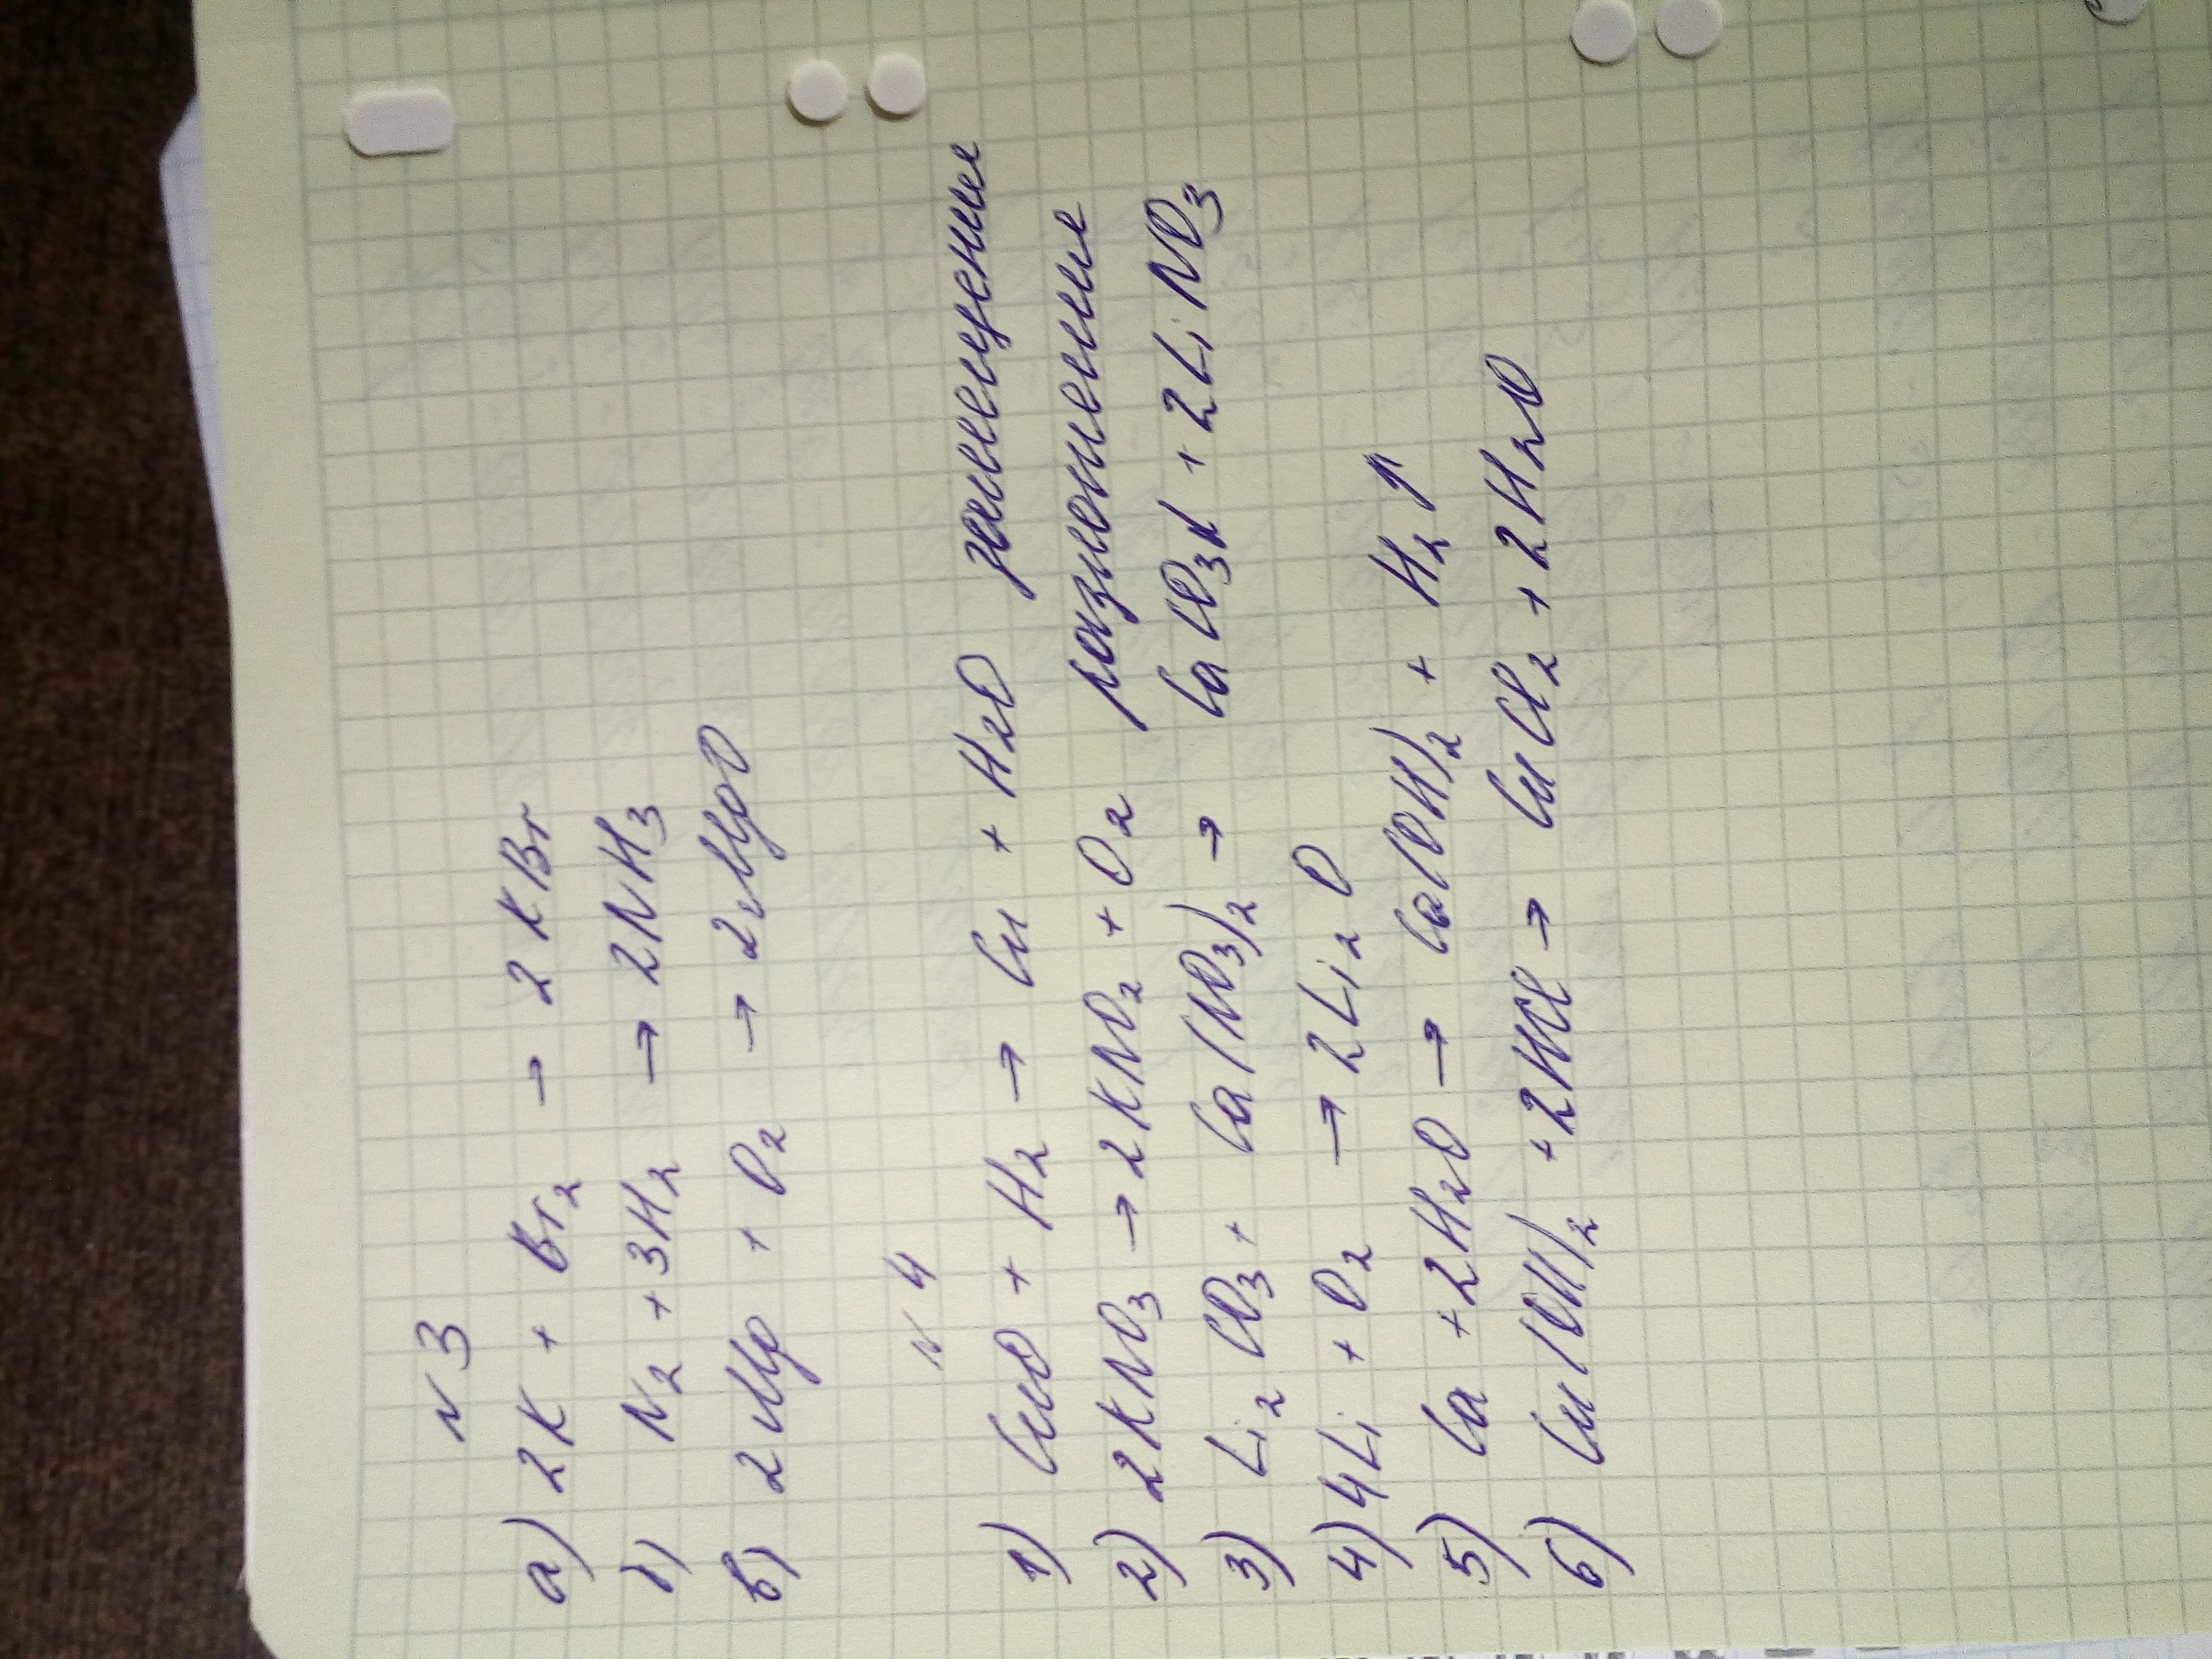 N 3
а) 2K + Br₂ → 2KBr
б) N₂ + 3H₂ → 2NH₃
в) 2Mg + O₂ → 2MgO
N 4
1) CuO + H₂ → Cu + H₂O замещение
2) 2KNO₃ → 2KNO₂ + O₂ разложение
3) Li₂CO₃ + Ca(NO₃)₂ → CaCO₃↓ + 2LiNO₃
4) 4Li + O₂ → 2Li₂O
5) Ca + 2H₂O → Ca(OH)₂ + H₂↑
6) Cu(OH)₂ + 2HCl → CuCl₂ + 2H₂O